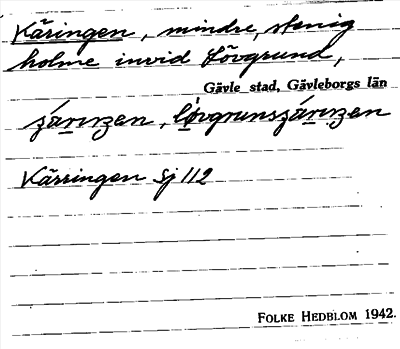 Käringen, mindre, stenig
holme invid Lövgrund,
Gävle stad, Gävleborgs län
Kärringen Sj 112
FOLKE HEDBLOM 1942.